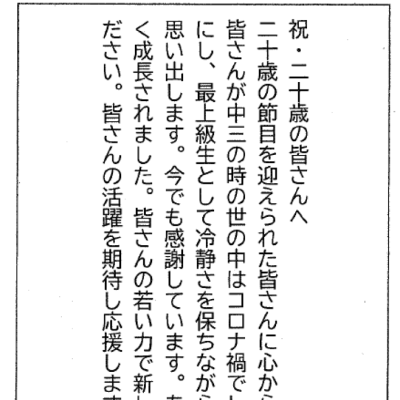 祝・二十歳の皆さんへ
二十歳の節目を迎えられた皆さんに心から
皆さんが中三の時の世の中はコロナ禍で
にし、最上級生として冷静さを保ちながら
思い出します。今でも感謝しています。
く成長されました。皆さんの若い力で新し
ださい。皆さんの活躍を期待し応援します